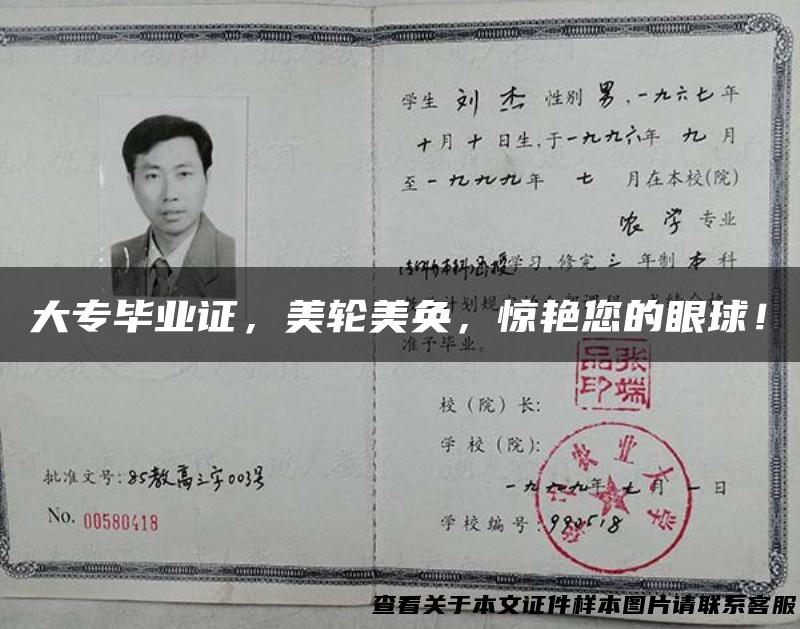 学生 刘杰 性别 男，一九六七年
十月十日生,于一九九六年 九月
至一九九九年 七 月在本校(院)
农学 专业
(专科升本科)函授学习、修完 三 年制 本 科
大专毕业证，美轮美奂，惊艳您的眼球！
准予毕业。
张端品印
校（院）长:
学 校（院）:
农业大学
一九九九年 七月 一日
学校编号:980518
批准文号:85教高三字003号
No. 00580418
查看关于本文证件样本图片请联系客服